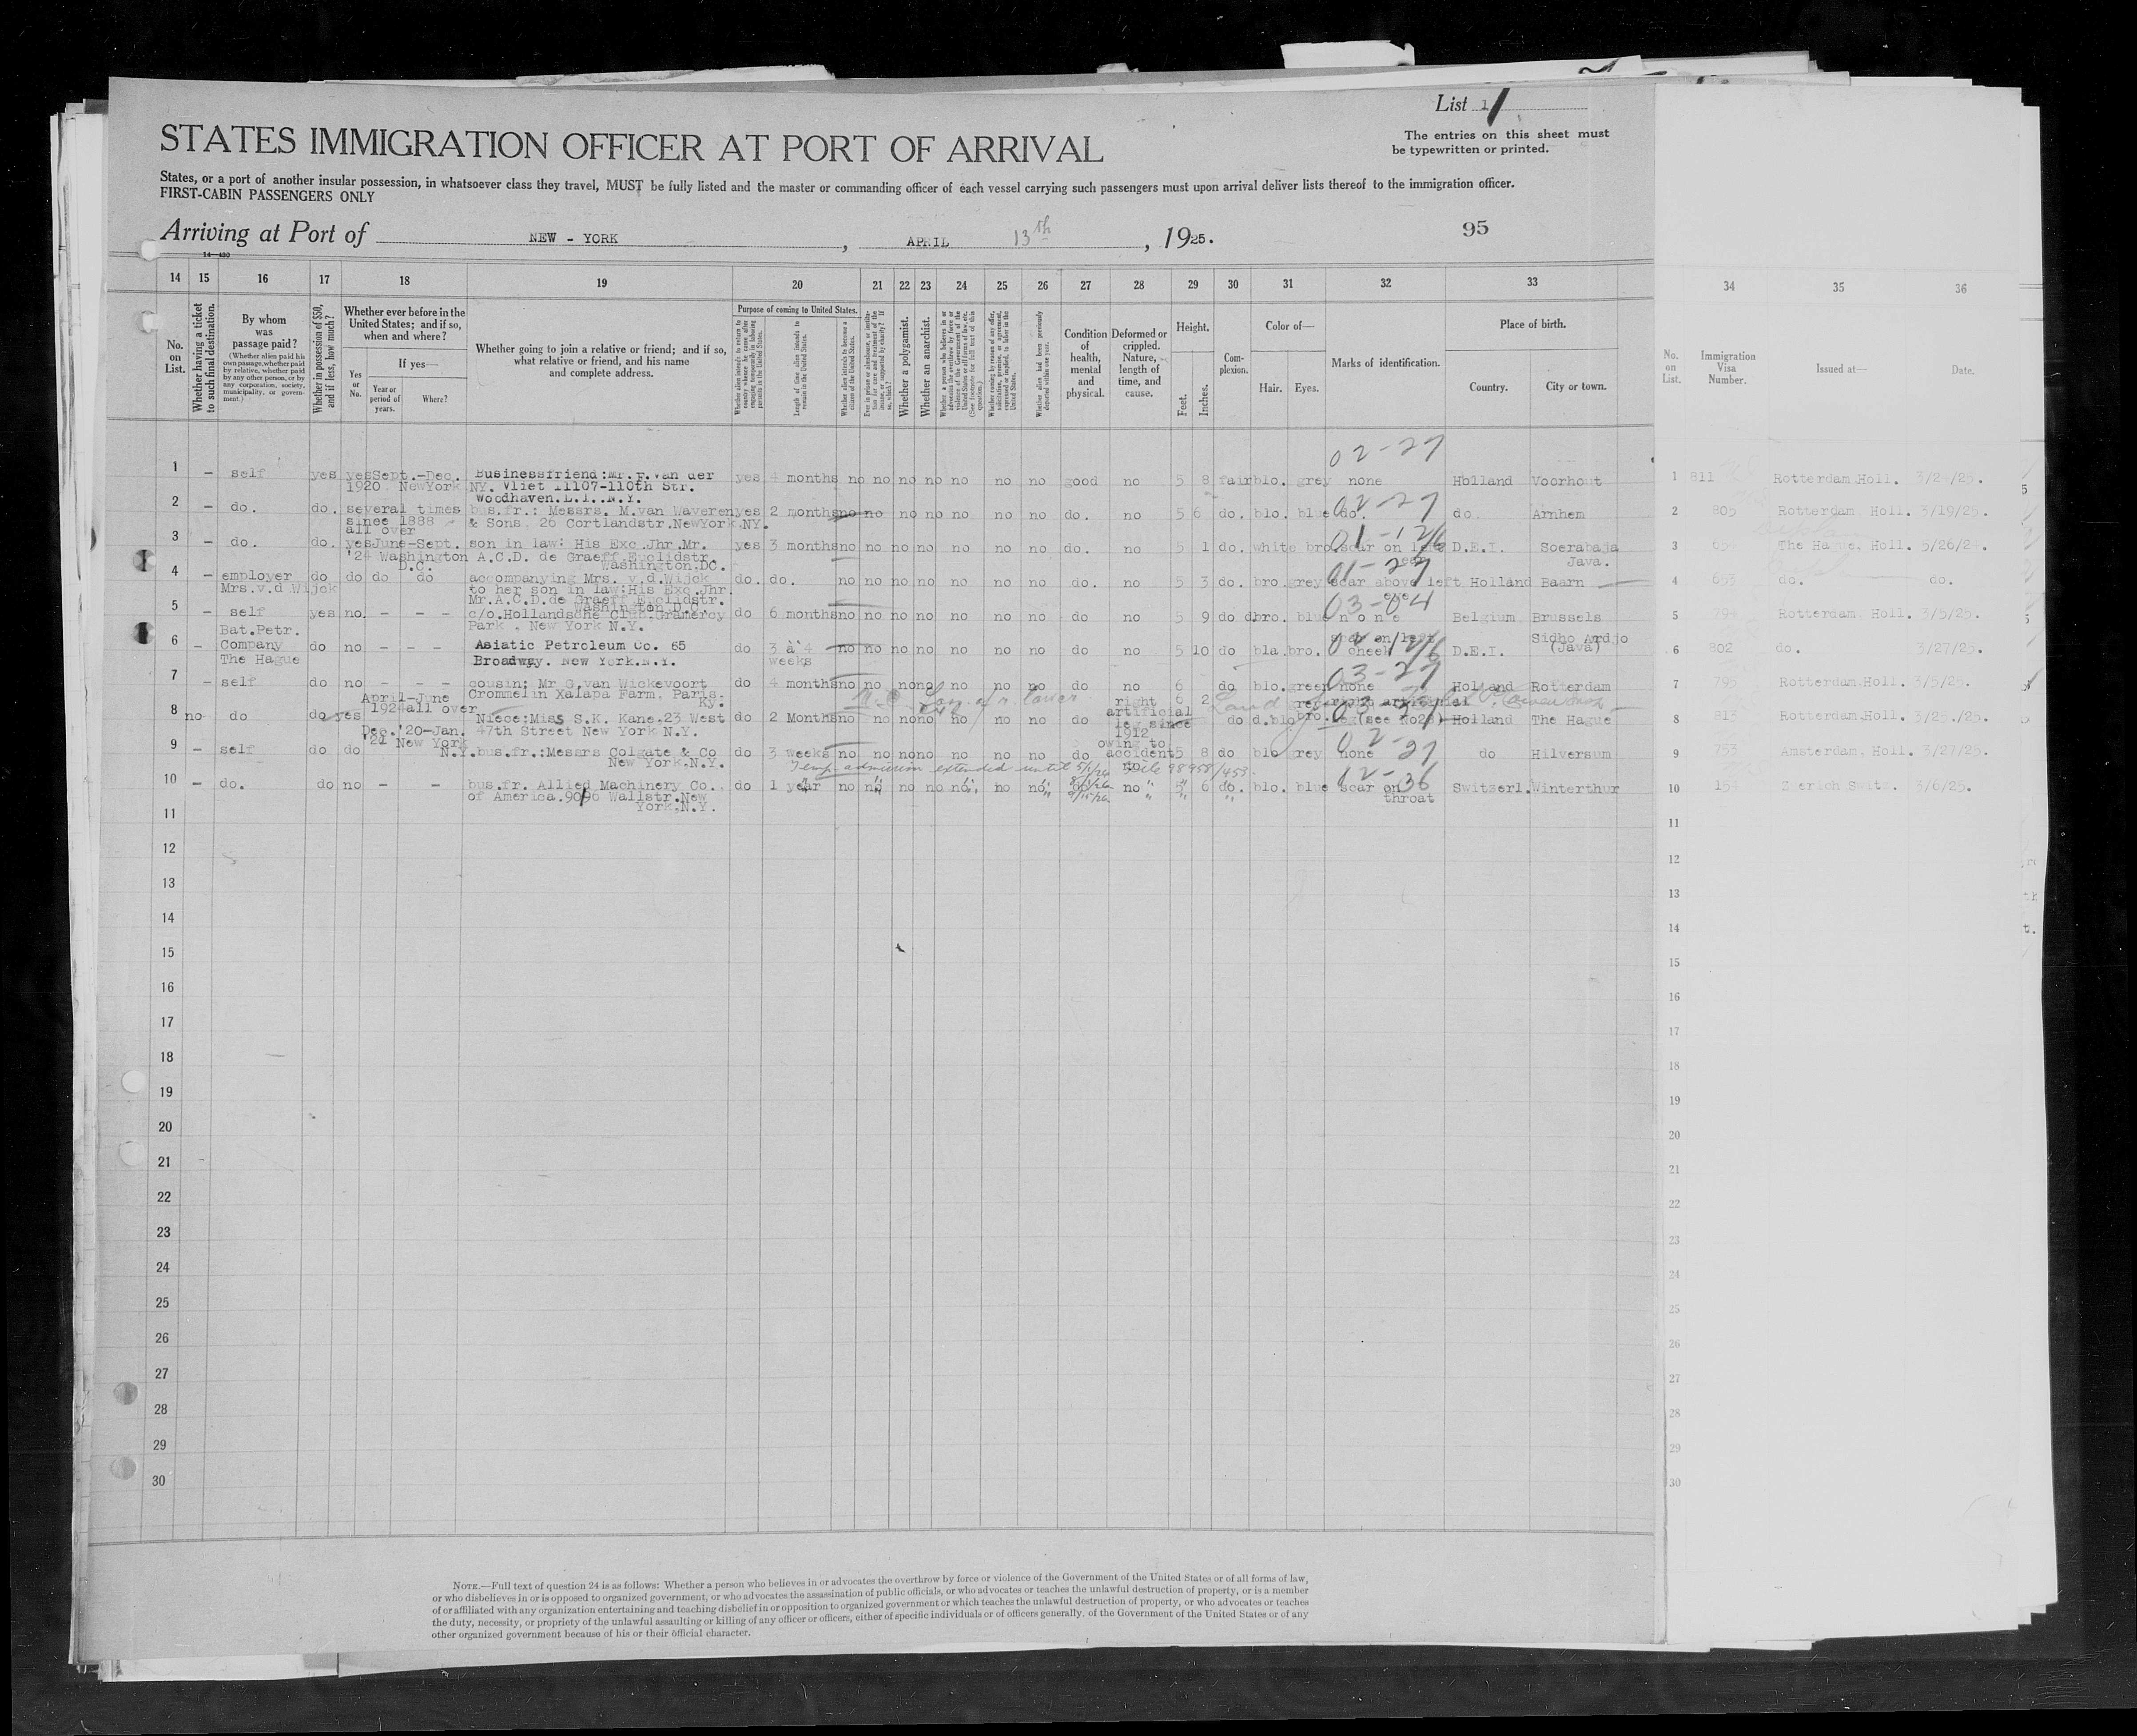 List 1
STATES IMMIGRATION OFFICER AT PORT OF ARRIVAL
The entries on this sheet must
be typewritten or printed.
States, or a port of another insular possession, in whatsoever class they travel, MUST be fully listed and the master or commanding officer of each vessel carrying such passengers must upon arrival deliver lists thereof to the immigration officer.
FIRST-CABIN PASSENGERS ONLY
Arriving at Port of NEW - YORK, APRIL 13th, 1925.
95
14 15 16 17 18 19 20 21 22 23 24 25 26 27 28 29 30 31 32 33 34 35 36
No. on List.
Whether having a ticket to such final destination.
By whom was passage paid?
(Whether alien paid his own passage, whether paid by relative, whether paid by any other person, or by any corporation, society, municipality, or government.)
Whether in possession of $50, and if less, how much?
Whether ever before in the United States; and if so, when and where?
Yes or No.
If yes—
Year or period of years.
Where?
Whether going to join a relative or friend; and if so, what relative or friend, and his name and complete address.
Purpose of coming to United States.
Length of time alien intends to remain in the United States.
Whether alien intends to become a citizen of the United States.
Whether a polygamist.
Whether an anarchist.
Condition of health, mental and physical.
Deformed or crippled. Nature, length of time, and cause.
Height.
Feet. Inches.
Complexion.
Color of—
Hair. Eyes.
Marks of identification.
Place of birth.
Country. City or town.
No. on List.
Immigration Visa Number.
Issued at—
Date.
02-27
1 — self yes yes Sept.-Dec. Businessfriend: Mr. F. van der yes 4 months no no no no no no no good no 5 8 fair blo. grey none Holland Voorhout 1 811 Rotterdam Holl.
1920 NewYork NY. Vliet 11107-110th Str.
Woodhaven. L.I. N.Y.
02-27
2 — do. do. several times bus.fr.: Messrs. M.van Waveren yes 2 months no no no no no no no do. no 5 6 do. blo. blue do. do. Arnhem 2 805 Rotterdam Holl. 3/19/25.
since 1888 & Sons. 26 Cortlandstr. NewYork NY.
all over
01-12/6
3 — do. do. yes June-Sept. son in law: His Exc. Jhr. Mr. yes 3 months no no no no no no no do. no 5 1 do. white bro. scar on left D.E.I. Soerabaja 3 The Hague. Holl.
'24 Washington A.C.D. de Graeff Euclidstr. Java.
D.C. Washington.DC.
01-27
4 — employer do do do do accompanying Mrs. v.d.Wijck do. do. no no no no no no no do. no 5 3 do. bro. grey scar above left Holland Baarn 4 653 do. do.
Mrs.v.d Wijck to her son in law: His Exc. Jhr. eye
Mr. A.C.D. de Graeff Euclidstr.
Washington D.C.
03-04
5 — self yes no. — — — c/o. Hollandsche Club. Gramercy do 6 months no no no no no no no do no 5 9 do dbro. blue none Belgium Brussels 5 794 Rotterdam. Holl. 3/5/25.
Park. New York N.Y.
Bat.Petr.
6 — Company do no — — — Asiatic Petroleum Co. 65 do 3 à 4 no no no no no no no do no 5 10 do bla. bro. cheek D.E.I. Sidho Ardjo 6 802 do. 3/27/25.
The Hague Broadway. New York.N.Y. weeks (Java)
03-27
7 — self do no — — — cousin: Mr G. van Wickevoort do 4 months no no no no no no no do no 6 do blo. green none Holland Rotterdam 7 795 Rotterdam Holl. 3/5/25.
Crommelin Xalapa Farm. Paris. Ky.
April-June
1924 all over
03-27
8 no do do yes Niece: Miss S.K. Kane. 23 West do 2 Months no no no no no no no do right artificial leg since 1912 owing to accident 6 2 do d.blo (see No28) Holland The Hague 8 813 Rotterdam.Holl. 3/25./25.
Dec.'20-Jan. 47th Street New York N.Y.
'21 New York
02-27
9 — self do do N.Y. bus.fr.: Messrs Colgate & Co do 3 weeks no no no no no no no do no 5 8 do blo grey none do Hilversum 9 753 Amsterdam. Holl. 3/27/25.
New York.N.Y.
Temp. admission extended until
12-36
10 — do. do no — — bus.fr. Allied Machinery Co. do 1 year no no no no no no no do no 5 6 do. blo. blue scar on Switzerl. Winterthur 10 Zuerich Switz. 3/6/25.
of America. 90/96 Wallstr. New throat
York.N.Y.
11 11
12 12
13 13
14 14
15 15
16 16
17 17
18 18
19 19
20 20
21 21
22 22
23 23
24 24
25 25
26 26
27 27
28 28
29 29
30 30
NOTE.—Full text of question 24 is as follows: Whether a person who believes in or advocates the overthrow by force or violence of the Government of the United States or of all forms of law,
or who disbelieves in or is opposed to organized government, or who advocates the assassination of public officials, or who advocates or teaches the unlawful destruction of property, or is a member
of or affiliated with any organization entertaining and teaching disbelief in or opposition to organized government or which teaches the unlawful destruction of property, or who advocates or teaches
the duty, necessity, or propriety of the unlawful assaulting or killing of any officer or officers, either of specific individuals or of officers generally, of the Government of the United States or of any
other organized government because of his or their official character.